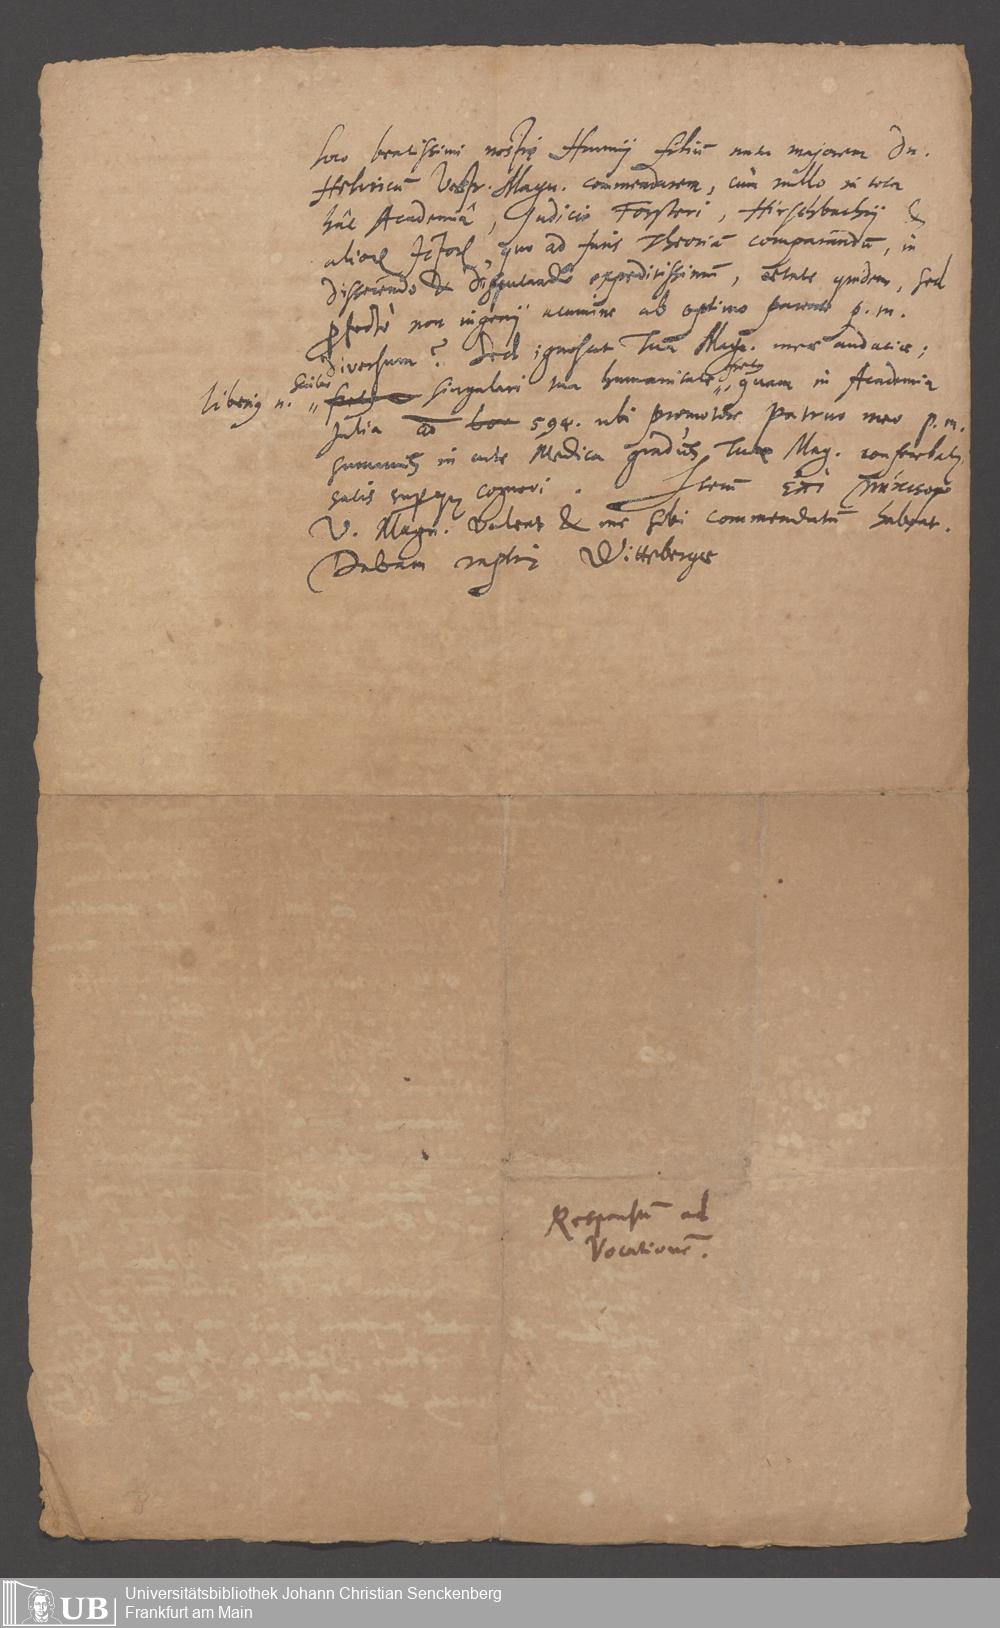 loco beatissimi nostri Hunnij filium natu majorem Dn.
Helvicū Vestr. Magn. commendarem, cùm nullo in tota
hâc Academiâ, Judicio Forsteri, Hirschbachij &
alior̃ JCtor̃ quo ad Juris Theoriā comparandā, in
disserendo & disputando expeditissimū, ætate quidem, sed
profectò non ingenij acumine ab optimo parente p. m.
diversum? Sed ignoscat Tua Magn. meæ audaciæ;
singulari tua humanitate, quam in Academia
Julia 594. ubi promotore Patruo meo p. m.
summus in arte Medica gradus Tuæ Mag. conferebatur,
satis superque cognovi. Iterū
V. Magn. valeat & me sibi commendatū habeat.
Dabam raptim Wittebergæ
Responsū ad
Vocationē.
UB
Universitätsbibliothek Johann Christian Senckenberg
Frankfurt am Main